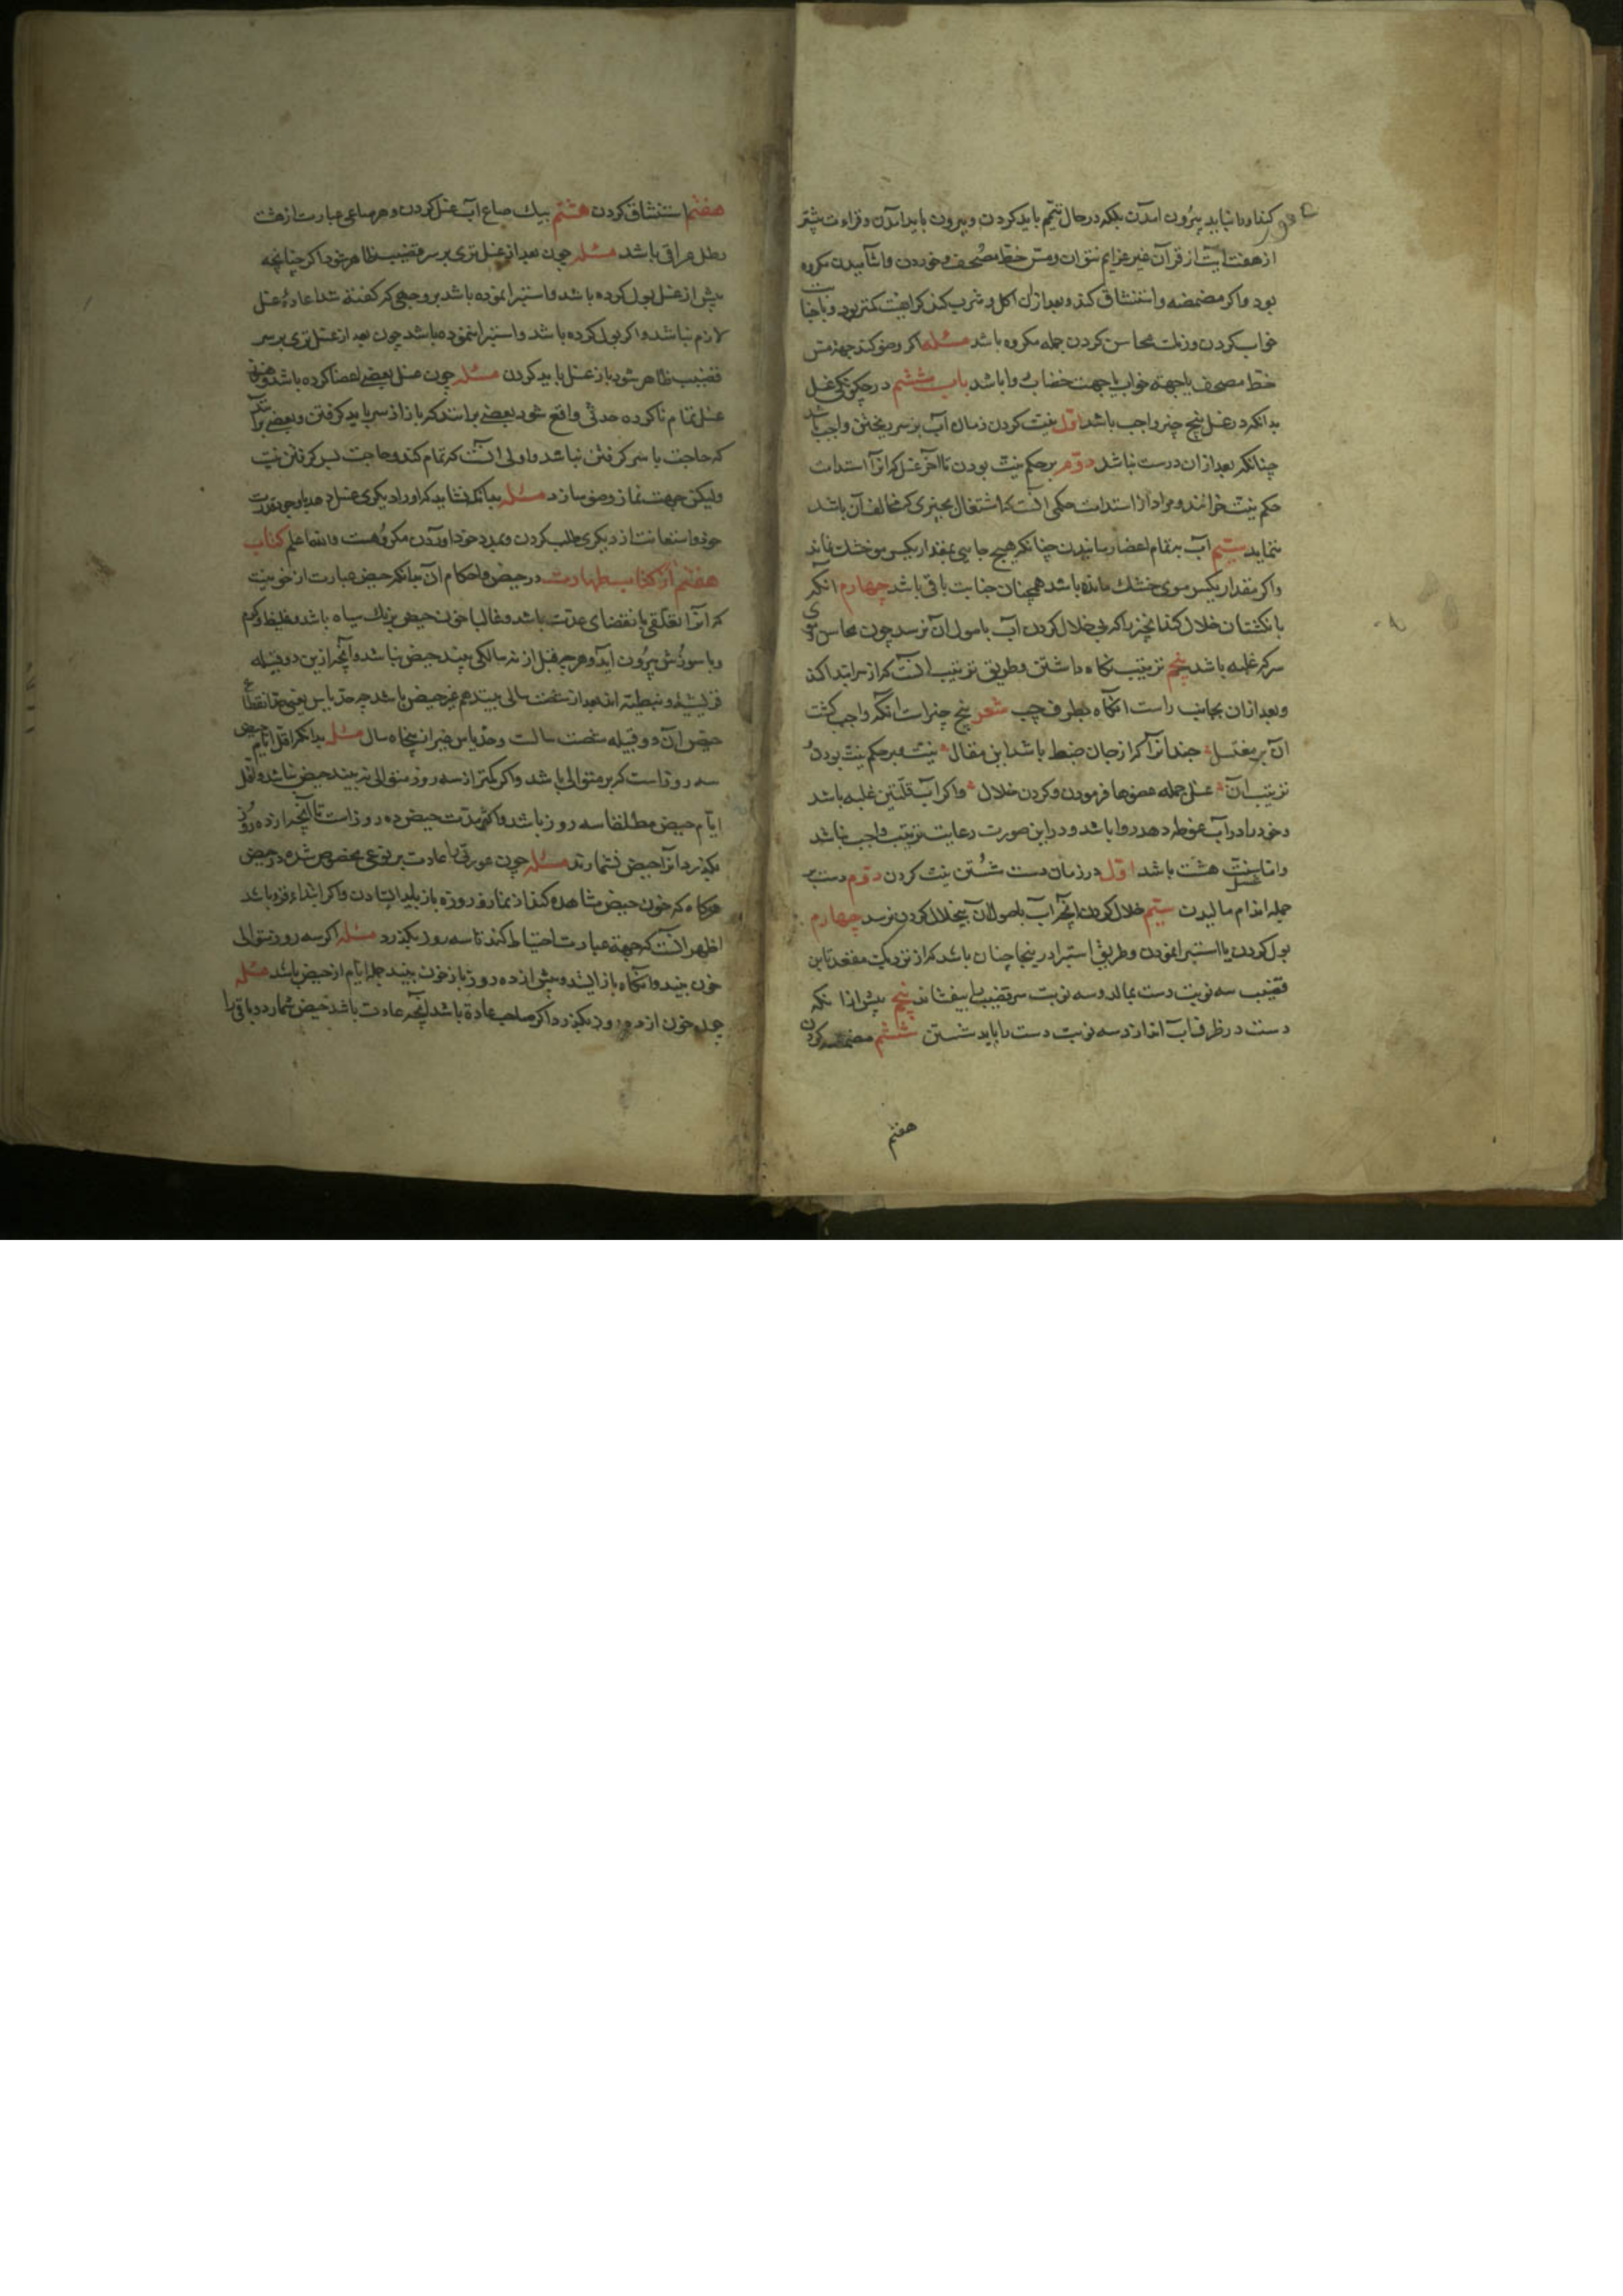 کند او را نباید بیرون آمدن بلکه در حال تیمم باید کردن و بیرون باید آمدن و قراءت بیشتر
از هفت آیت از قرآن غیر عزایم نتوان و مس خط مصحف و خوردن و اشامیدن مکروه
بود و اکر مضمضه و استنشاق کند و بعد از ان اکل و شرب کند کراهیت کمتر بود و با جنابت
خواب کردن و زلت محاسن کردن جمله مکروه باشد مسئله اکر وضو کند جهة مس
خط مصحف یا جهة خواب یا جهت خضاب روا باشد باب ششم در چکونکی غسل
بدانکه در غسل پنج چیز واجب باشد اول نیت کردن زمان آب بر سر ریختن واجب باشد
چنانکه بعد از ان درست نباشد دوم بر حکم نیت بودن تا آخر غسل که انرا استدامت
حکم نیت خوانند و مراد از استدامت حکمی آنست که اشتغال بچیزی که مخالف آن باشد
ننماید سیم آب بتمام اعضا رسانیدن چنانکه هیچ جایی بمقدار یکسر مو خشک نماند
و اکر مقدار یکسر موی خشک مانده باشد همچنان جنابت باقی باشد چهارم انکه
بانکشتان خلال کند انچیز را که بی خلال کردن آب باصول آن نرسد چون محاسن و موی
سر که غلبه باشد پنجم ترتیب نکاه داشتن و طریق ترتیب آنست که از سر ابتدا کند
و بعد از ان بجانب راست انکاه بطرف چپ شعر پنج چیز است انکه واجب کشت
ان بر مغتسل جند آنرا کر از جان ضبط باشد این مقال نیت و بر حکم نیت بودن
ترتیب آن غسل جمله عضوها فرمودن و کردن خلال و اکر آب قلتین غلبه باشد
و خود را در آب غوطه دهد روا باشد و در این صورت رعایت ترتیب واجب نباشد
و اما سنت غسل هشت باشد اول در زمان دست شستن نیت کردن دوم دست بر
جمله اندام مالیدن سیم خلال کردن انچه آب باصول آن بیخلال کردن نرسد چهارم
بول کردن یا استبرا نمودن و طریق استبرا در ینجا چنان باشد که از نزدیک مقعد تا بن
قضیب سه نوبت دست بمالد و سه نوبت سر قضیب را بیفشاند پنجم پیش از انکه
دست در ظرف آب اندازد سه نوبت دست را باید شستن ششم مضمضه کردن
هفتم
هفتم استنشاق کردن هشتم بیک صاع آب غسل کردن و هر صاعی عبارت از هشت
رطل عراقی باشد مسئله چون بعد از غسل تری بر سر قضیب ظاهر شود اکر چنانچه
پیش از غسل بول کرده باشد و استبرا نموده باشد بر وجهی که کفته شد اعادهٔ غسل
لازم نباشد و اکر بول کرده باشد و استبرا ننموده باشد چون بعد از غسل تری بر سر
قضیب ظاهر شود باز غسل باید کردن مسئله چون غسل بعضی اعضا کرده باشد و هنوز
غسل تمام ناکرده حدثی واقع شود بعضی بر انند که باز از سر باید کرفتن و بعضی بر انند
که حاجت با سر کرفتن نباشد و اولی آنست که تمام کند و حاجت بسر کرفتن نیست
ولیکن جهت نماز وضو سازد مسئله بدانکه نشاید که او را دیکری غسل دهد با وجود قدرت
خود و استعانت از دیکری طلب کردن و بمدد خود اوردن مکروهست و الله اعلم کتاب
هفتم از کتاب طهارت در حیض و احکام آن بدانکه حیض عبارت از خونیست
که انرا تعلقی بانقضای عدت باشد و غالبا خون حیض برنک سیاه باشد و غلیظ و کرم
و با سوزش بیرون آید و هر چه قبل از نه سالکی بیند حیض نباشد و آنچه از ین دو قبیله
قرشیه و نبطیه اند بعد از شصت سالی بینند هم غیر حیض باشد چه حد یاس یعنی حد انقطاع
حیض ان دو قبیله شصت سالست و حد یاس غیر از پنجاه سال مسئله بدانکه اقل ایام حیض
سه روز است که بر متوالی باشد و اکر کمتر از سه روز متوالی بیند حیض نباشد و اقل
ایام حیض مطلقا سه روز باشد و اکثر مدت حیض ده روز است تا آنچه از ده روز
بکذرد انرا حیض نشمارند مسئله چون عورتی را عادت بر نوعی مخصوص شده در حیض
هرکاه که خون حیض مشاهده کند از نماز و روزه باز باید ایستادن و اکر ابتداء خون باشد
اظهر آنست که جهة عبارت احتیاط کند تا سه روز بکذرد مسئله اکر سه روز متوالی
خون بیند و انکاه باز ایستد و پیش از ده روز باز خون بیند جمله ایام از حیض باشد مسئله
چون خون از ده روز بکذرد اکر صاحب عادة باشد انچه عادت باشد حیض شمارد و باقی را